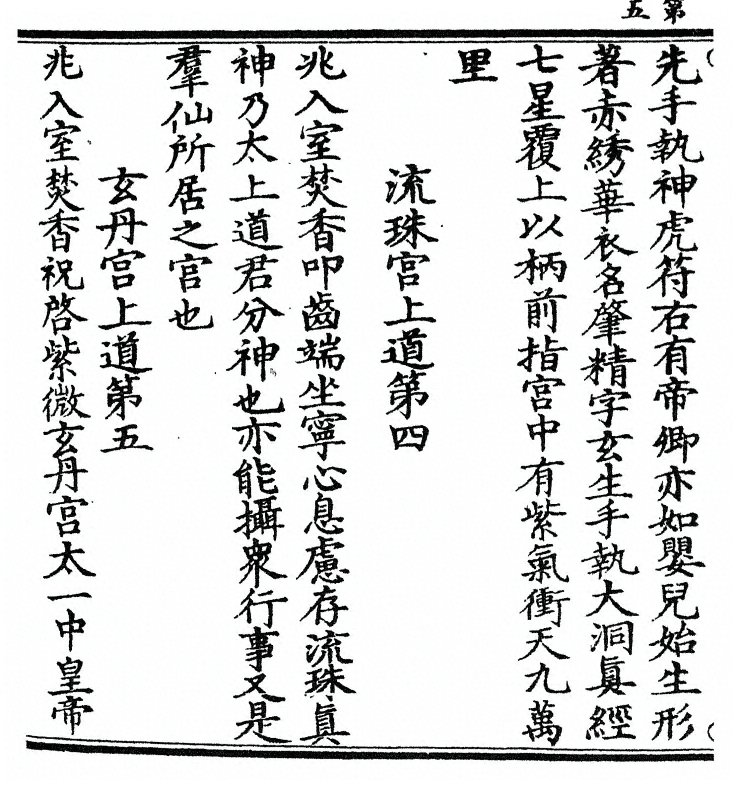 第五
先手執神虎符右有帝卿亦如嬰兒始生形
著赤綉華衣名肇精字玄生手執大洞眞經
七星覆上以柄前指宫中有紫氣衝天九萬
里
流珠宫上道第四
兆入室焚香叩齒端坐寧心息慮存流珠眞
神乃太上道君分神也亦能攝衆行事又是
羣仙所居之宫也
玄丹宫上道第五
兆入室焚香祝啓紫微玄丹宫太一中皇帝